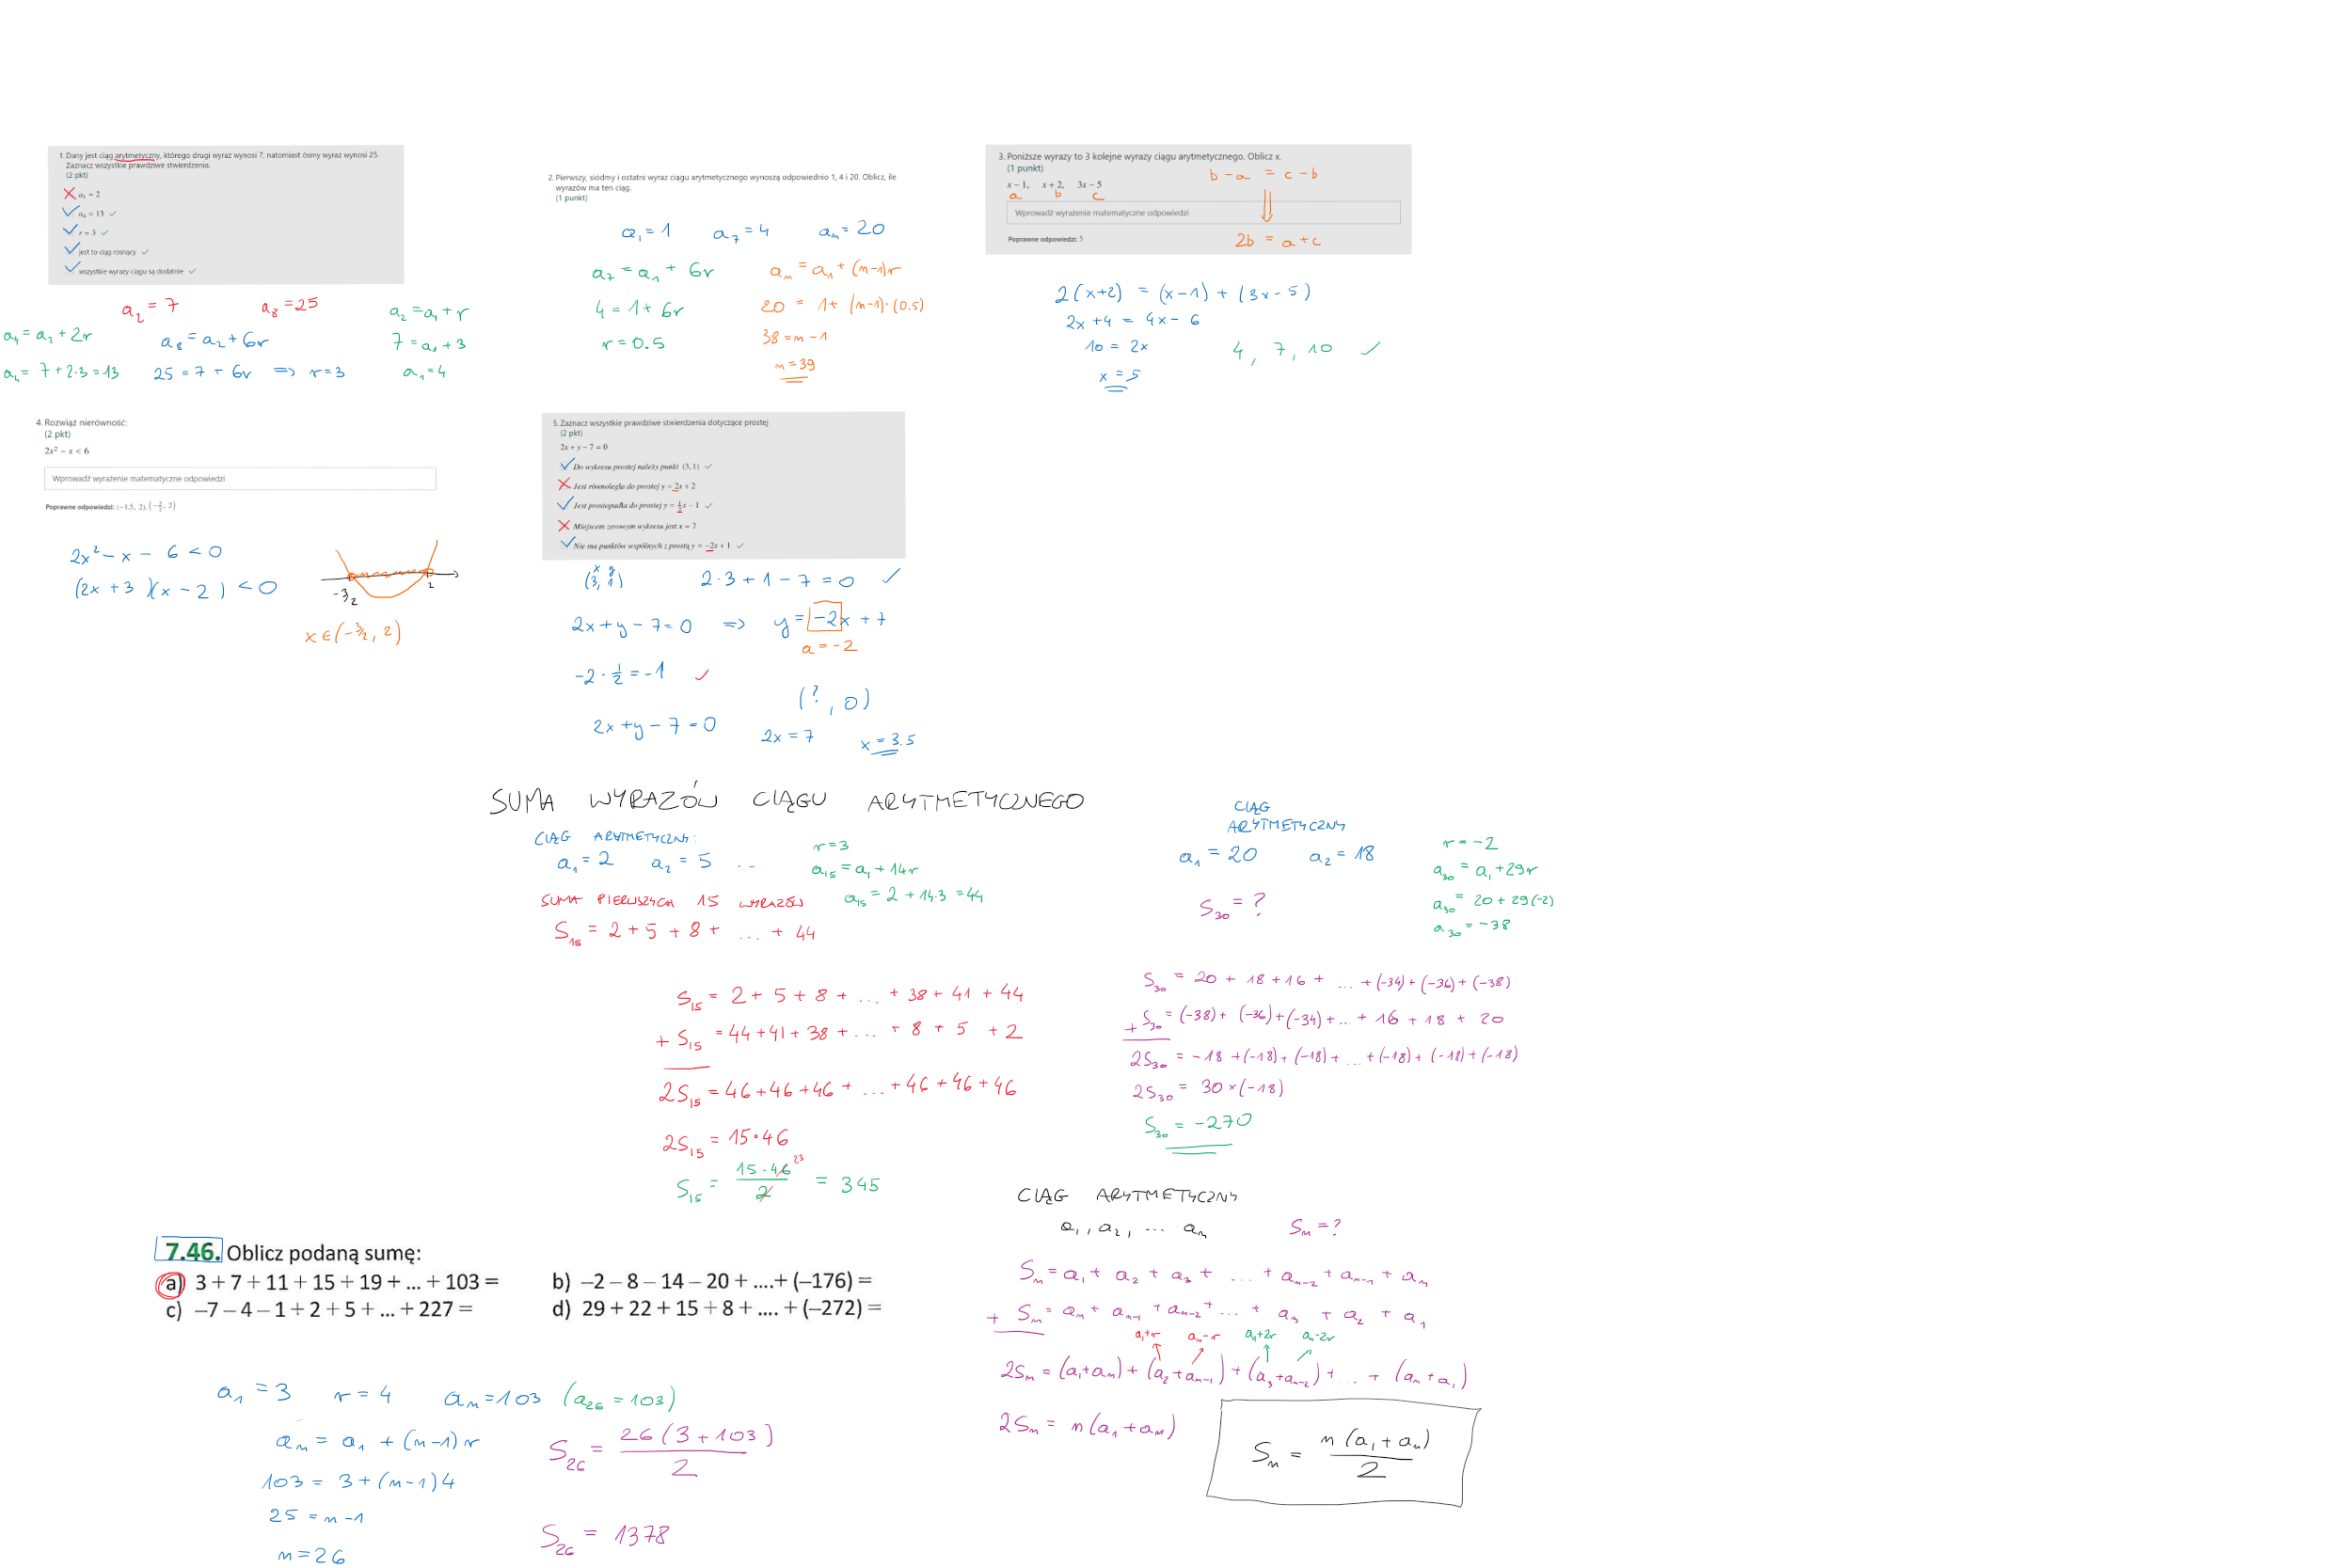 1. Dany jest ciąg arytmetyczny, którego drugi wyraz wynosi 7, natomiast ósmy wyraz wynosi 25.
Zaznacz wszystkie prawdziwe stwierdzenia.
(2 pkt)
a₁ = 2
a₄ = 13 ✓
r = 3 ✓
jest to ciąg rosnący ✓
wszystkie wyrazy ciągu są dodatnie ✓
a₂ = 7 a₈ = 25
a₂ = a₁ + r
a₄ = a₂ + 2r a₈ = a₂ + 6r 7 = a₁ + 3
a₄ = 7 + 2·3 = 13 25 = 7 + 6r => r = 3 a₁ = 4
2. Pierwszy, siódmy i ostatni wyraz ciągu arytmetycznego wynoszą odpowiednio 1, 4 i 20. Oblicz, ile
wyrazów ma ten ciąg.
(1 punkt)
a₁ = 1 a₇ = 4 aₙ = 20
a₇ = a₁ + 6r aₙ = a₁ + (n-1)r
4 = 1 + 6r 20 = 1 + (n-1)·(0.5)
r = 0.5 38 = n - 1
n = 39
3. Poniższe wyrazy to 3 kolejne wyrazy ciągu arytmetycznego. Oblicz x.
(1 punkt)
b - a = c - b
x − 1, x + 2, 3x − 5
a b c
Wprowadź wyrażenie matematyczne odpowiedzi
Poprawne odpowiedzi: 5
2b = a + c
2(x+2) = (x-1) + (3x-5)
2x + 4 = 4x - 6
10 = 2x 4, 7, 10 ✓
x = 5
4. Rozwiąż nierówność:
(2 pkt)
2x² − x < 6
Wprowadź wyrażenie matematyczne odpowiedzi
Poprawne odpowiedzi: (−1.5, 2), (−3/2, 2)
2x² - x - 6 < 0
(2x + 3)(x - 2) < 0
-3/2 2
x ∈ (-3/2, 2)
5. Zaznacz wszystkie prawdziwe stwierdzenia dotyczące prostej
(2 pkt)
2x + y − 7 = 0
Do wykresu prostej należy punkt (3, 1) ✓
Jest równoległa do prostej y = 2x + 2
Jest prostopadła do prostej y = 1/2x − 1 ✓
Miejscem zerowym wykresu jest x = 7
Nie ma punktów wspólnych z prostą y = −2x + 1 ✓
x y
(3, 1) 2·3 + 1 - 7 = 0 ✓
2x + y - 7 = 0 => y = -2x + 7
a = -2
-2 · 1/2 = -1 ✓
(?, 0)
2x + y - 7 = 0 2x = 7 x = 3.5
SUMA WYRAZÓW CIĄGU ARYTMETYCZNEGO
CIĄG ARYTMETYCZNY:
a₁ = 2 a₂ = 5 ..
r = 3
a₁₅ = a₁ + 14r
a₁₅ = 2 + 14·3 = 44
SUMA PIERWSZYCH 15 WYRAZÓW
S₁₅ = 2 + 5 + 8 + ... + 44
S₁₅ = 2 + 5 + 8 + ... + 38 + 41 + 44
+ S₁₅ = 44 + 41 + 38 + ... + 8 + 5 + 2
2S₁₅ = 46 + 46 + 46 + ... + 46 + 46 + 46
2S₁₅ = 15·46
S₁₅ = 15·46/2 = 345
23
CIĄG
ARYTMETYCZNY
a₁ = 20 a₂ = 18
r = -2
a₃₀ = a₁ + 29r
a₃₀ = 20 + 29(-2)
a₃₀ = -38
S₃₀ = ?
S₃₀ = 20 + 18 + 16 + ... + (-34) + (-36) + (-38)
+ S₃₀ = (-38) + (-36) + (-34) + ... + 16 + 18 + 20
2S₃₀ = -18 + (-18) + (-18) + ... + (-18) + (-18) + (-18)
2S₃₀ = 30 × (-18)
S₃₀ = -270
CIĄG ARYTMETYCZNY
a₁, a₂, ... aₙ Sₙ = ?
Sₙ = a₁ + a₂ + a₃ + ... + aₙ₋₂ + aₙ₋₁ + aₙ
+ Sₙ = aₙ + aₙ₋₁ + aₙ₋₂ + ... + a₃ + a₂ + a₁
a₁+r aₙ-r a₁+2r aₙ-2r
2Sₙ = (a₁+aₙ) + (a₂+aₙ₋₁) + (a₃+aₙ₋₂) + ... + (aₙ+a₁)
2Sₙ = n(a₁+aₙ)
Sₙ = n(a₁+aₙ)/2
7.46. Oblicz podaną sumę:
a) 3 + 7 + 11 + 15 + 19 + ... + 103 =
b) –2 – 8 – 14 – 20 + ....+ (–176) =
c) –7 – 4 – 1 + 2 + 5 + ... + 227 =
d) 29 + 22 + 15 + 8 + .... + (–272) =
a₁ = 3 r = 4 aₙ = 103 (a₂₆ = 103)
aₙ = a₁ + (n-1)r
103 = 3 + (n-1)4
25 = n - 1
n = 26
S₂₆ = 26(3+103)/2
S₂₆ = 1378